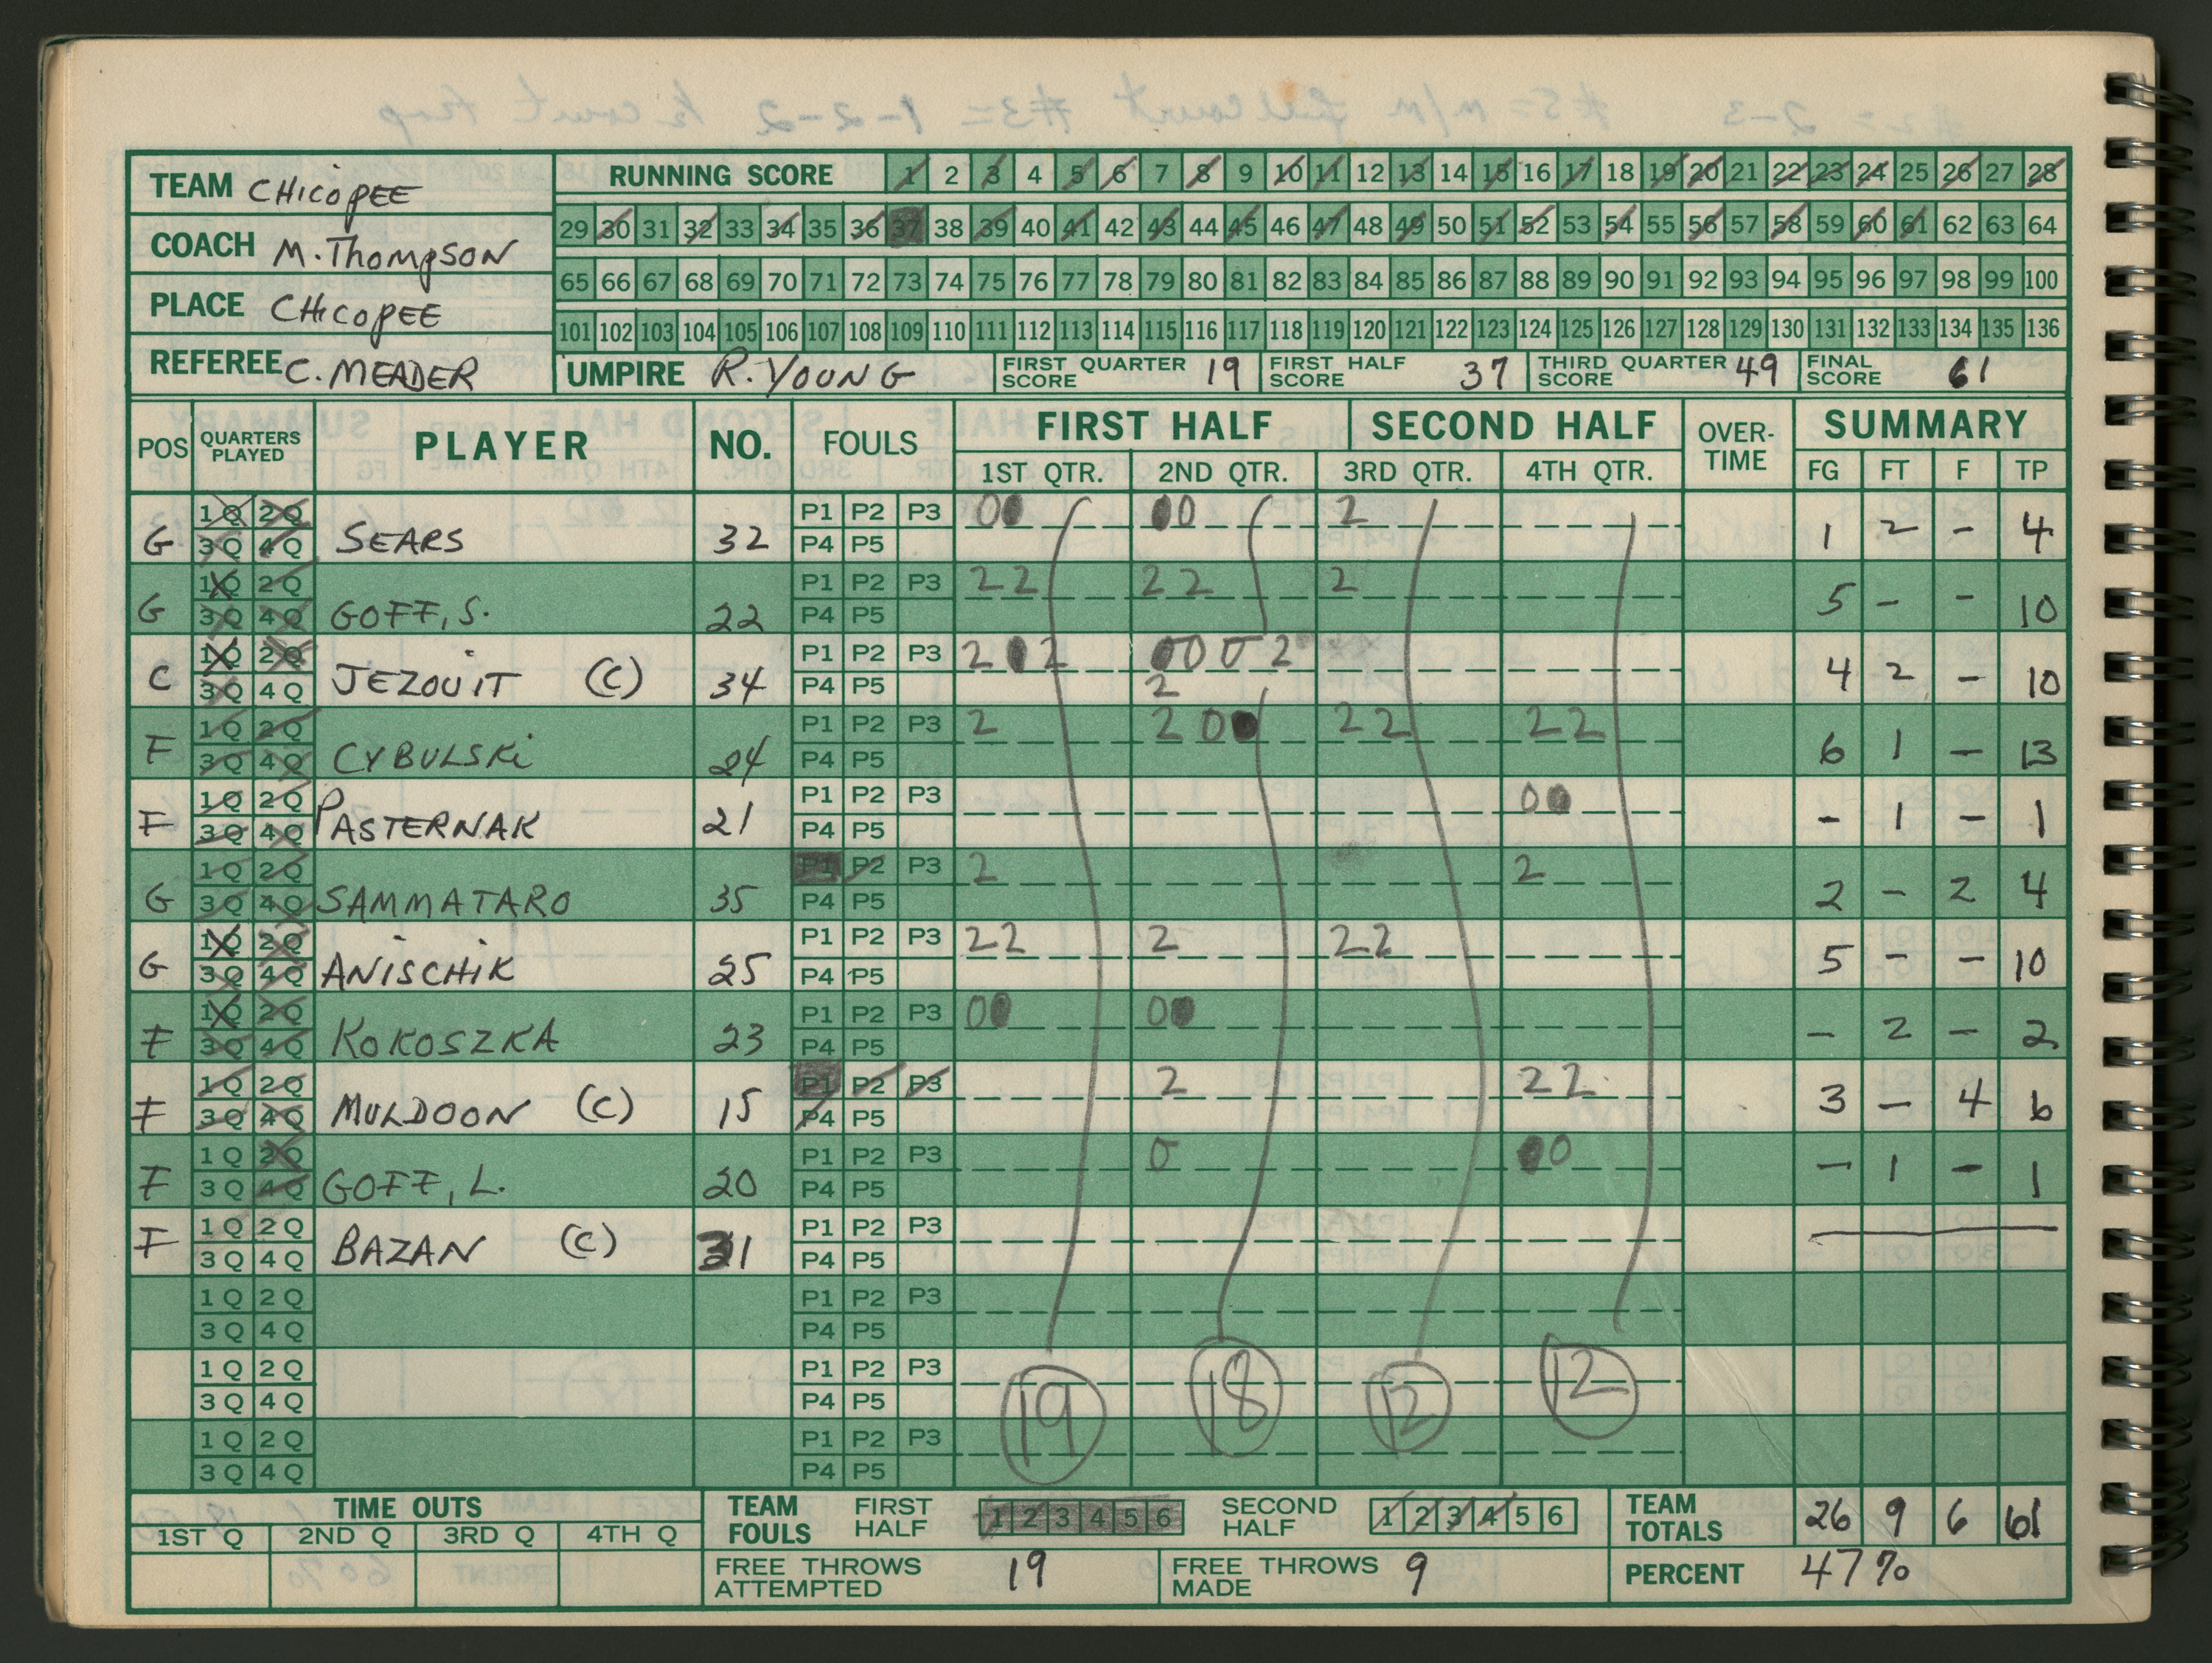 TEAM CHICOPEE
COACH M. THOMPSON
PLACE CHICOPEE
REFEREE C. MEADER
RUNNING SCORE 1 2 3 4 5 6 7 8 9 10 11 12 13 14 15 16 17 18 19 20 21 22 23 24 25 26 27 28
29 30 31 32 33 34 35 36 37 38 39 40 41 42 43 44 45 46 47 48 49 50 51 52 53 54 55 56 57 58 59 60 61 62 63 64
65 66 67 68 69 70 71 72 73 74 75 76 77 78 79 80 81 82 83 84 85 86 87 88 89 90 91 92 93 94 95 96 97 98 99 100
101 102 103 104 105 106 107 108 109 110 111 112 113 114 115 116 117 118 119 120 121 122 123 124 125 126 127 128 129 130 131 132 133 134 135 136
UMPIRE R. YOUNG FIRST QUARTER SCORE 19 FIRST HALF SCORE 37 THIRD QUARTER SCORE 49 FINAL SCORE 61
POS QUARTERS PLAYED PLAYER NO. FOULS FIRST HALF SECOND HALF OVER-TIME SUMMARY
1ST QTR. 2ND QTR. 3RD QTR. 4TH QTR. FG FT F TP
1Q 2Q P1 P2 P3 00 00 2
G 3Q 4Q SEARS 32 P4 P5 1 2 - 4
1Q 2Q P1 P2 P3 22 22 2
G 3Q 4Q GOFF, S. 22 P4 P5 5 - - 10
1Q 2Q P1 P2 P3 202 0002
C 3Q 4Q JEZOUIT (C) 34 P4 P5 2 4 2 - 10
1Q 2Q P1 P2 P3 2 200 22 22
F 3Q 4Q CYBULSKI 24 P4 P5 6 1 - 13
1Q 2Q P1 P2 P3 00
F 3Q 4Q PASTERNAK 21 P4 P5 - 1 - 1
1Q 2Q P1 P2 P3 2 2
G 3Q 4Q SAMMATARO 35 P4 P5 2 - 2 4
1Q 2Q P1 P2 P3 22 2 22
G 3Q 4Q ANISCHIK 25 P4 P5 5 - - 10
1Q 2Q P1 P2 P3 00 00
F 3Q 4Q KOKOSZKA 23 P4 P5 - 2 - 2
1Q 2Q P1 P2 P3 2 22
F 3Q 4Q MULDOON (C) 15 P4 P5 3 - 4 6
1Q 2Q P1 P2 P3 0 00
F 3Q 4Q GOFF, L. 20 P4 P5 - 1 - 1
1Q 2Q P1 P2 P3
F 3Q 4Q BAZAN (C) 31 P4 P5
1Q 2Q P1 P2 P3
3Q 4Q P4 P5
1Q 2Q P1 P2 P3
3Q 4Q P4 P5 19 18 12 12
1Q 2Q P1 P2 P3
3Q 4Q P4 P5
TIME OUTS TEAM FOULS FIRST HALF 1 2 3 4 5 6 SECOND HALF 1 2 3 4 5 6 TEAM TOTALS 26 9 6 61
1ST Q 2ND Q 3RD Q 4TH Q
FREE THROWS ATTEMPTED 19 FREE THROWS MADE 9 PERCENT 47%